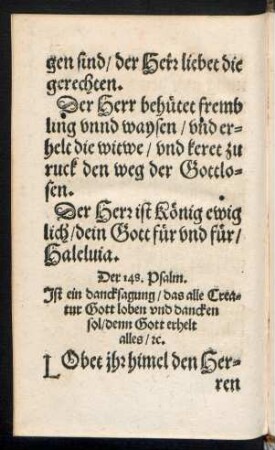 gen sind / der Herr liebet die
gerechten.
Der Herr behütet fremb
ling vnnd waysen / vnd er-
helt die witwe / vnd keret zu
ruck den weg der Gottlo-
sen.
Der Herr ist König ewig
lich / dein Gott für vnd für /
Haleluia.
Der 148. Psalm.
Ist ein dancksagung / das alle Crea-
tur Gott loben vnd dancken
sol / denn Gott erhelt
alles / ꝛc.
LObet jhr himel den Her-
ren